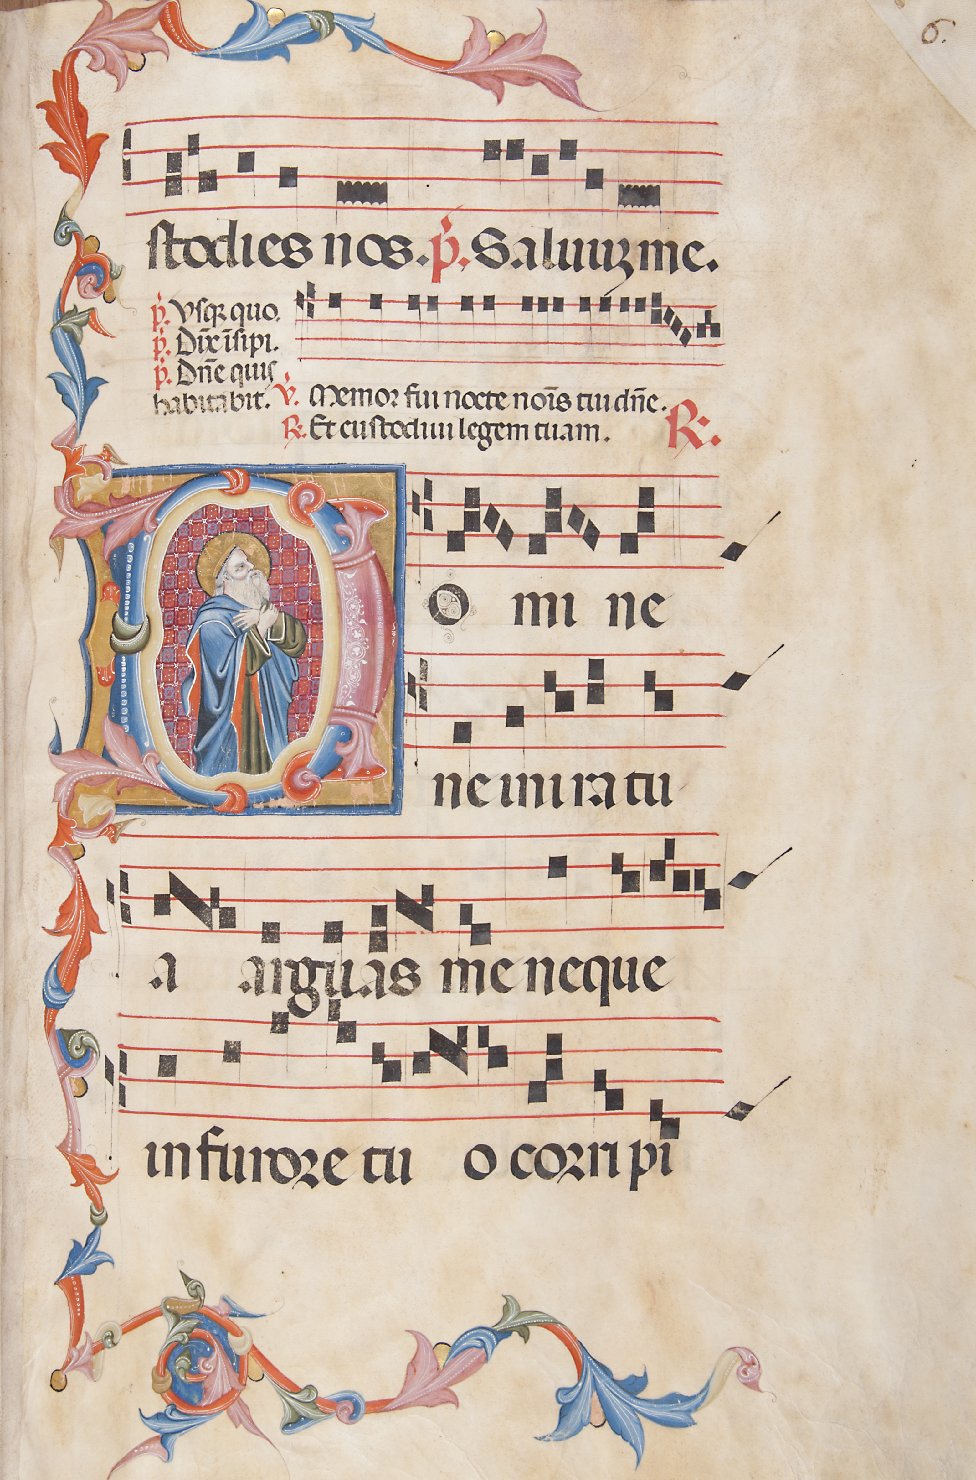 6.
stodies nos. p̄. Saluuȝ me.
p̄. Vsq quo.
p̄. Dix̄ īsipi.
p̄. Dn̄e quis
habitabit. V̄. Memor fui nocte noīs tui dn̄e.
R̄. Et custodiui legem tuam. R̄.
O mi ne
ne in ira tu
a arguas me neque
in furore tu o corripi